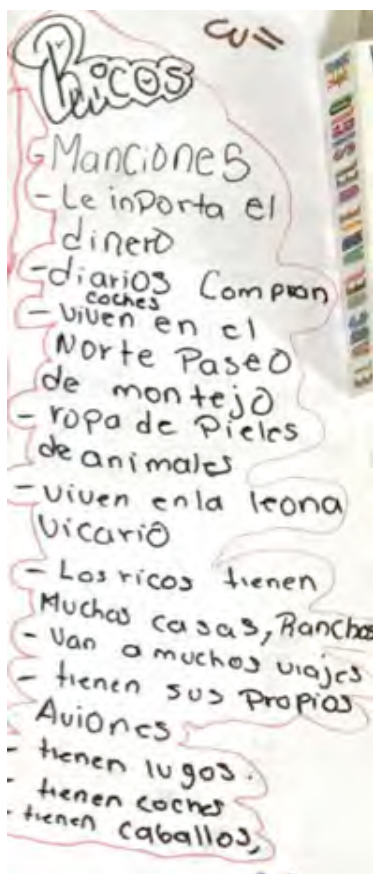 Ricos
Manciones
- Le inporta el
dinero
- diarios compran
coches
- viven en el
Norte Paseo
de montejo
- ropa de Pieles
de animales
- viven en la leona
vicario
- Los ricos tienen
Muchas casas, Ranchos
- Van a muchos viajes
- tienen sus Propios
Aviones
- tienen lugos.
- tienen coches
- tienen caballos,
EL ABC DEL ARTE DEL SIGLO